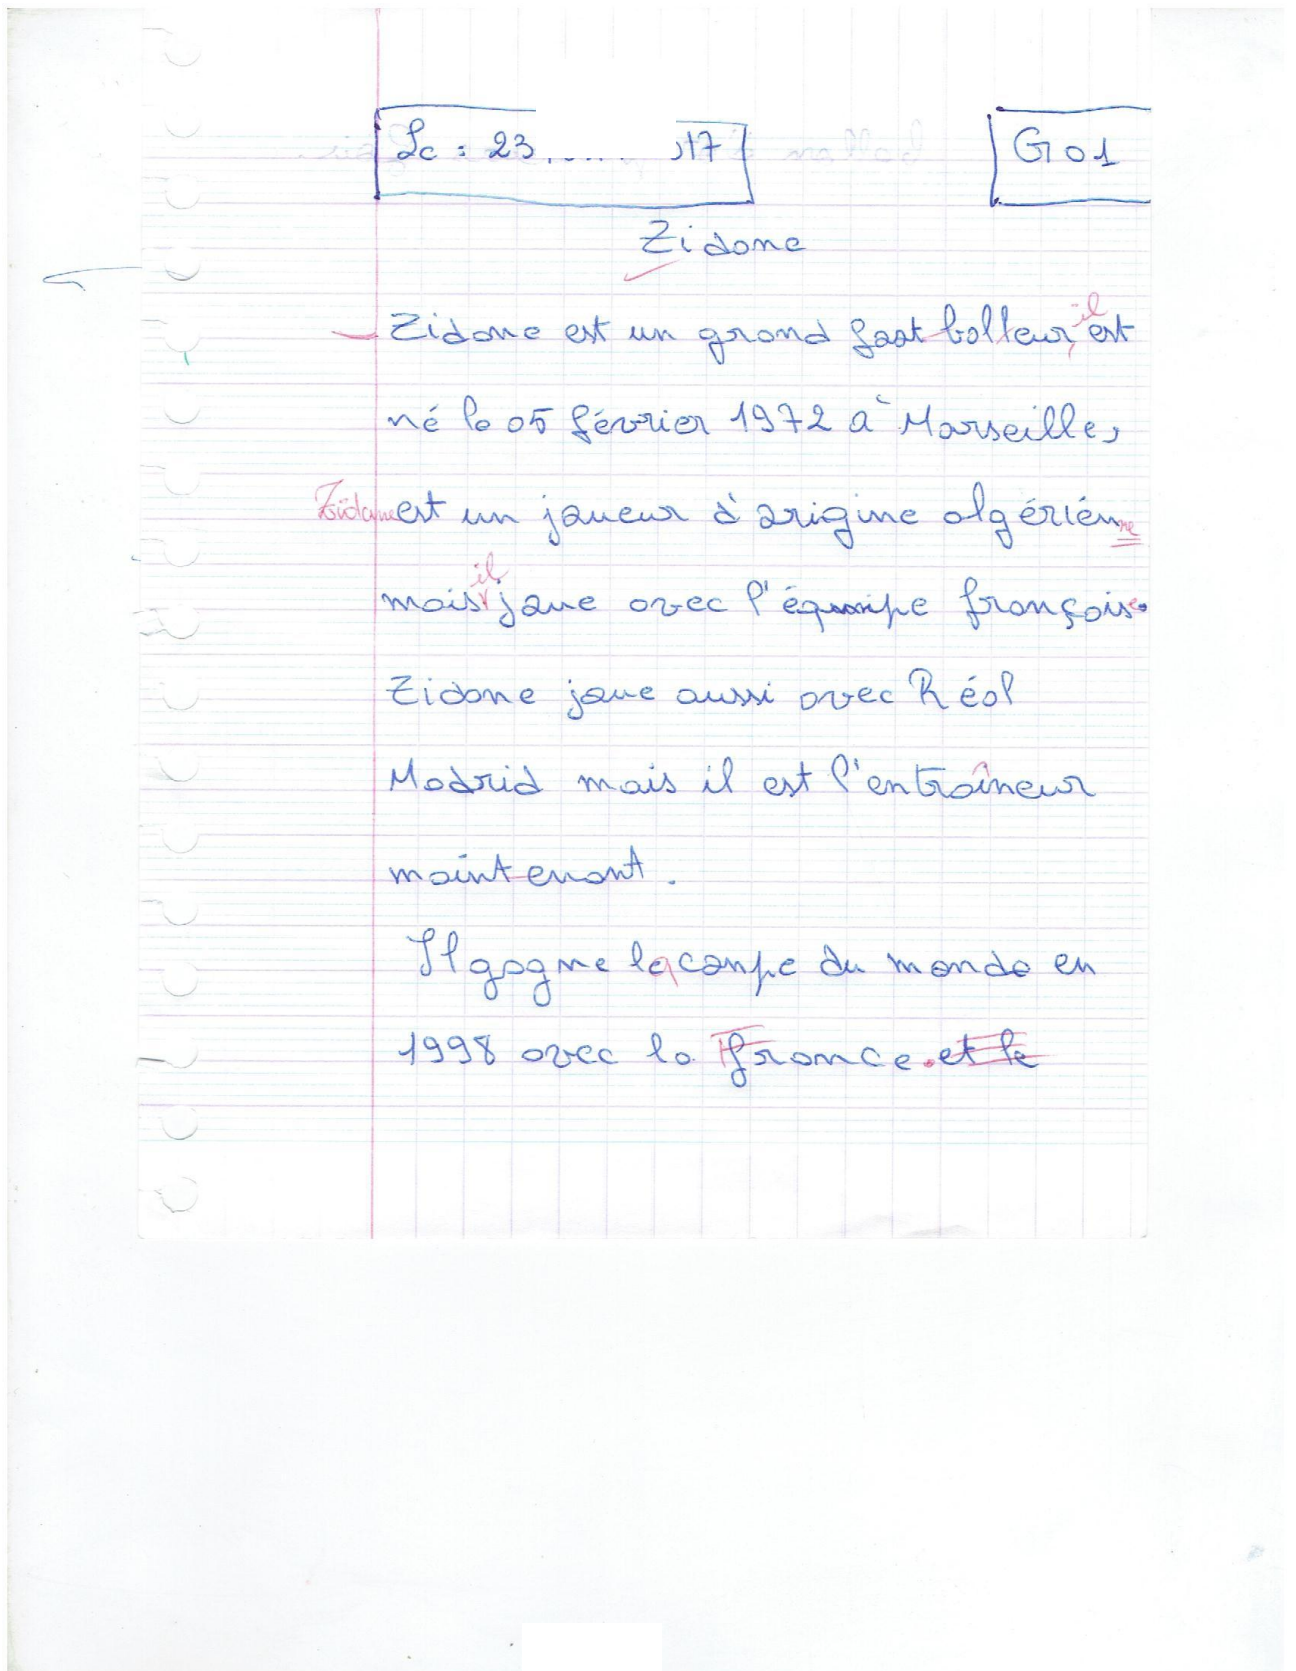 Lc : 23 17
G01
Zidane
il
Zidane est un grand foot balleur, est
né le 05 février 1972 à Marseille,
Zidane est un joueur d'origine algérienne
il
mais joue avec l'équipe française
Zidane joue aussi avec Réal
Madrid mais il est l'entraîneur
maintenant.
Il gagne la coupe du monde en
1998 avec la France. et le